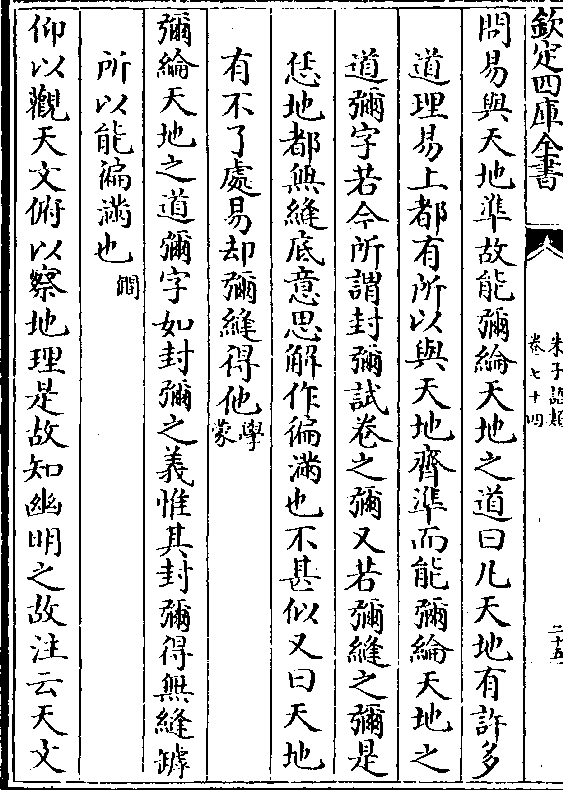 欽定四庫全書
朱子語類
卷七十四
二十五
問易與天地準故能彌綸天地之道曰凡天地有許多
道理易上都有所以與天地齊準而能彌綸天地之
道彌字若今所謂封彌試卷之彌又若彌縫之彌是
恁地都無縫底意思解作徧滿也不甚似又曰天地
有不了處易却彌縫得他學蒙
彌綸天地之道彌字如封彌之義惟其封彌得無縫罅
所以能徧滿也僩
仰以觀天文俯以察地理是故知幽明之故注云天文